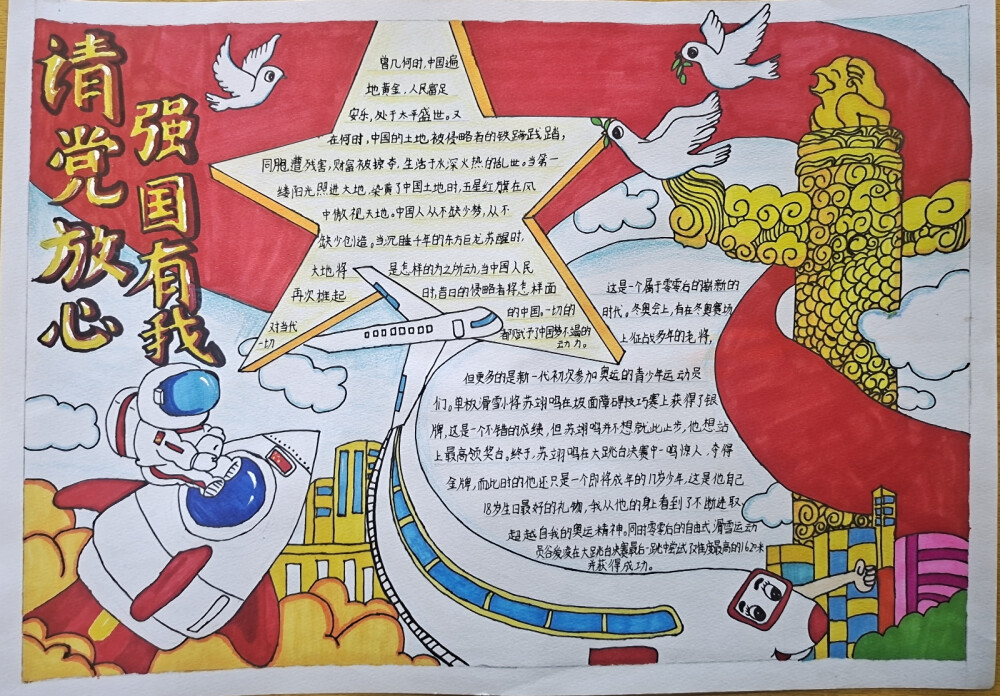 请党放心
强国有我
曾几何时,中国遍
地黄金,人民富足
安乐,处于太平盛世。又
在何时,中国的土地被侵略者的铁蹄践踏,
同胞遭残害,财富被掠夺,生活于水深火热的乱世。当第一
缕阳光照进大地,染黄了中国土地时,五星红旗在风
中傲视天地。中国人从不缺少梦,从不
缺少创造。当沉睡千年的东方巨龙苏醒时,
大地将 是怎样的为之所动,当中国人民
再次堆起 时,昔日的侵略者将怎样面
对当代 的中国。一切的
一切 都归式于了中国梦不竭的
动力。
这是一个属于零零后的崭新的
时代。冬奥会上,有在冬奥赛场
上征战多年的老将,
但更多的是新一代初次参加奥运的青少年运动员
们。单板滑雪小将苏翊鸣在坡面障碍技巧赛上获得了银
牌,这是一个不错的成绩,但苏翊鸣并不想就此止步,他想站
上最高领奖台。终于,苏翊鸣在大跳台决赛中一鸣惊人,夺得
金牌,而此时的他还只是一个即将成年的17岁少年,这是他自己
18岁生日最好的礼物,我从他的身上看到了不断进取
超越自我的奥运精神。同时零零后的自由式滑雪运动
员谷爱凌在大跳台决赛最后一跳中尝试了难度最高的1620
并获得成功。